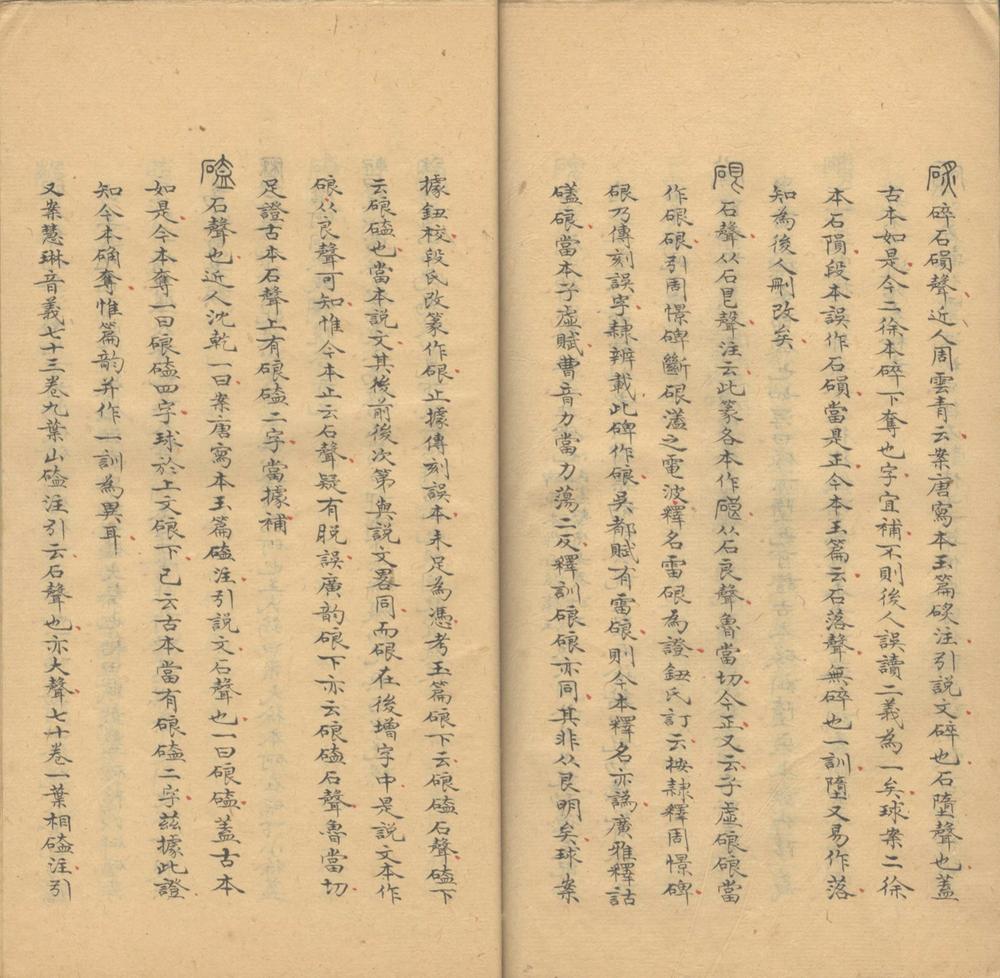 碎石隕聲近人周雲青云案唐寫本玉篇注引說文碎也石墮聲也蓋
古本如是今二徐本碎下奪也字宜補不則後人誤讀二義為一矣球案二徐
本石隕段本誤作石磒當是正今本玉篇云石落聲無碎也一訓墮又易作落
知為後人刪改矣
硍石聲从石皀聲注云此篆各本作硠从石良聲魯當切今正又云子虛硠硠當
作硍硍引周憬碑斷硍溘之電波釋名雷硍為證鈕氏訂云按隸釋周憬碑
硍乃傳刻誤字隸辨載此碑作硠吳都賦有雷硠則今本釋名亦譌廣雅釋詁
礚硠當本子虛賦曹音力當力蕩二反釋訓硠硠亦同其非从艮明矣球案
據鈕校段氏改篆作硍止據傳刻誤本未足為憑考玉篇硠下云硠磕石聲磕下
云硠磕也當本說文其後前後次第與說文畧同而硍在後增字中是說文本作
硠从良聲可知惟今本止云石聲疑有脫誤廣韵硠下亦云硠磕石聲魯當切
足證古本石聲上有硠磕二字當據補
磕石聲也近人沈乾一曰案唐寫本玉篇磕注引說文石聲也一曰硠磕蓋古本
如是今本奪一曰硠磕四字球於上文硠下已云古本當有硠磕二字茲據此證
知今本确奪惟篇韵并作一訓為異耳
又案慧琳音義七十三卷九葉山磕注引云石聲也亦大聲七十卷一葉相磕注引